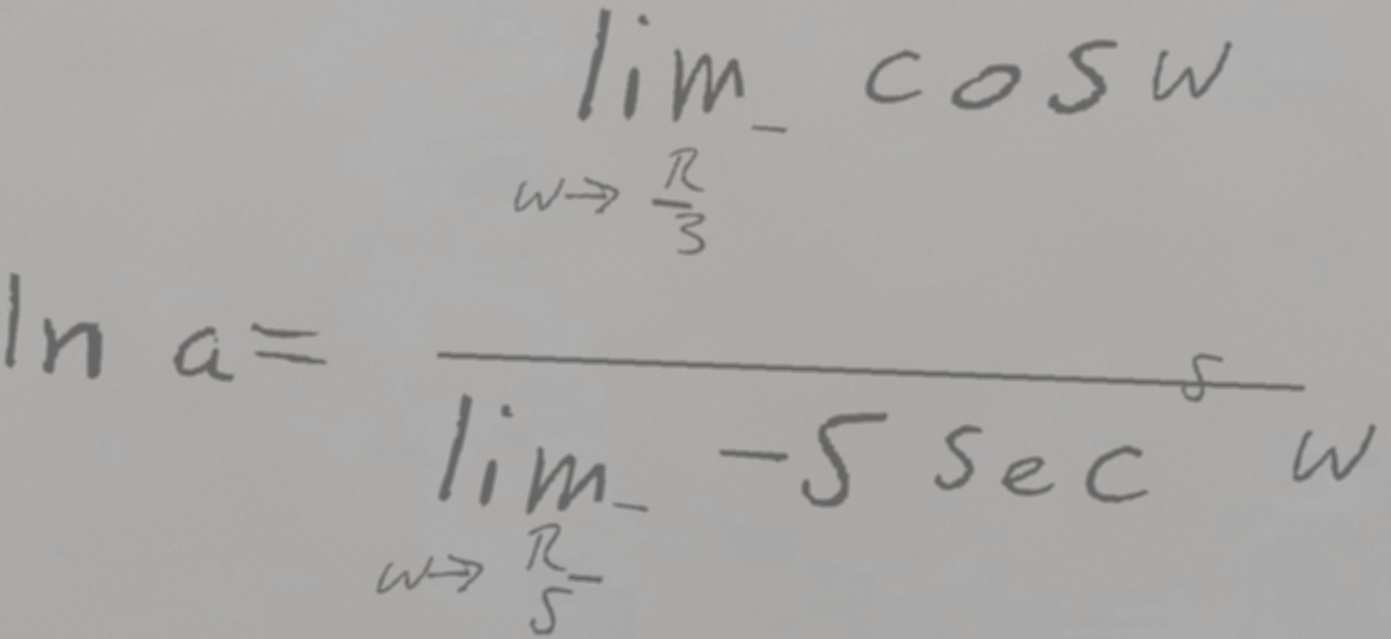 \ln a = \frac{\lim_{w \to \frac{\pi}{3}^-} \cos w}{\lim_{w \to \frac{\pi}{5}^-} -5 \sec^5 w}